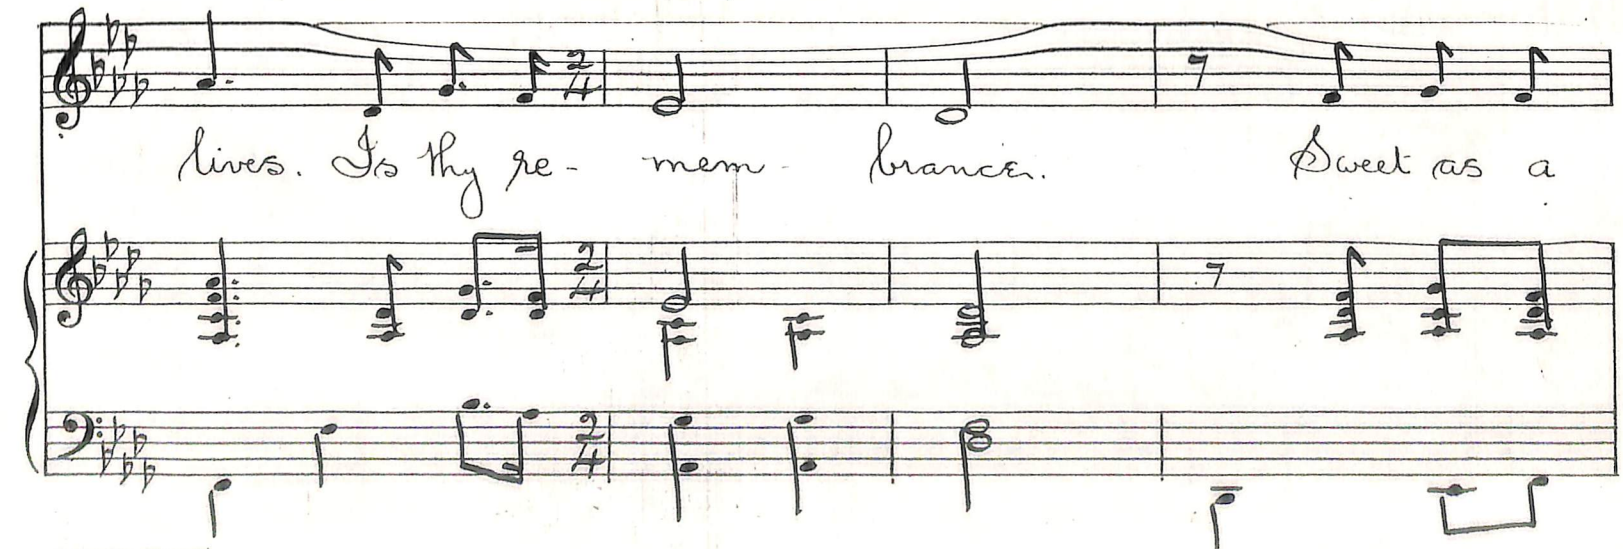 lives. Is thy re- mem- brance. Sweet as a